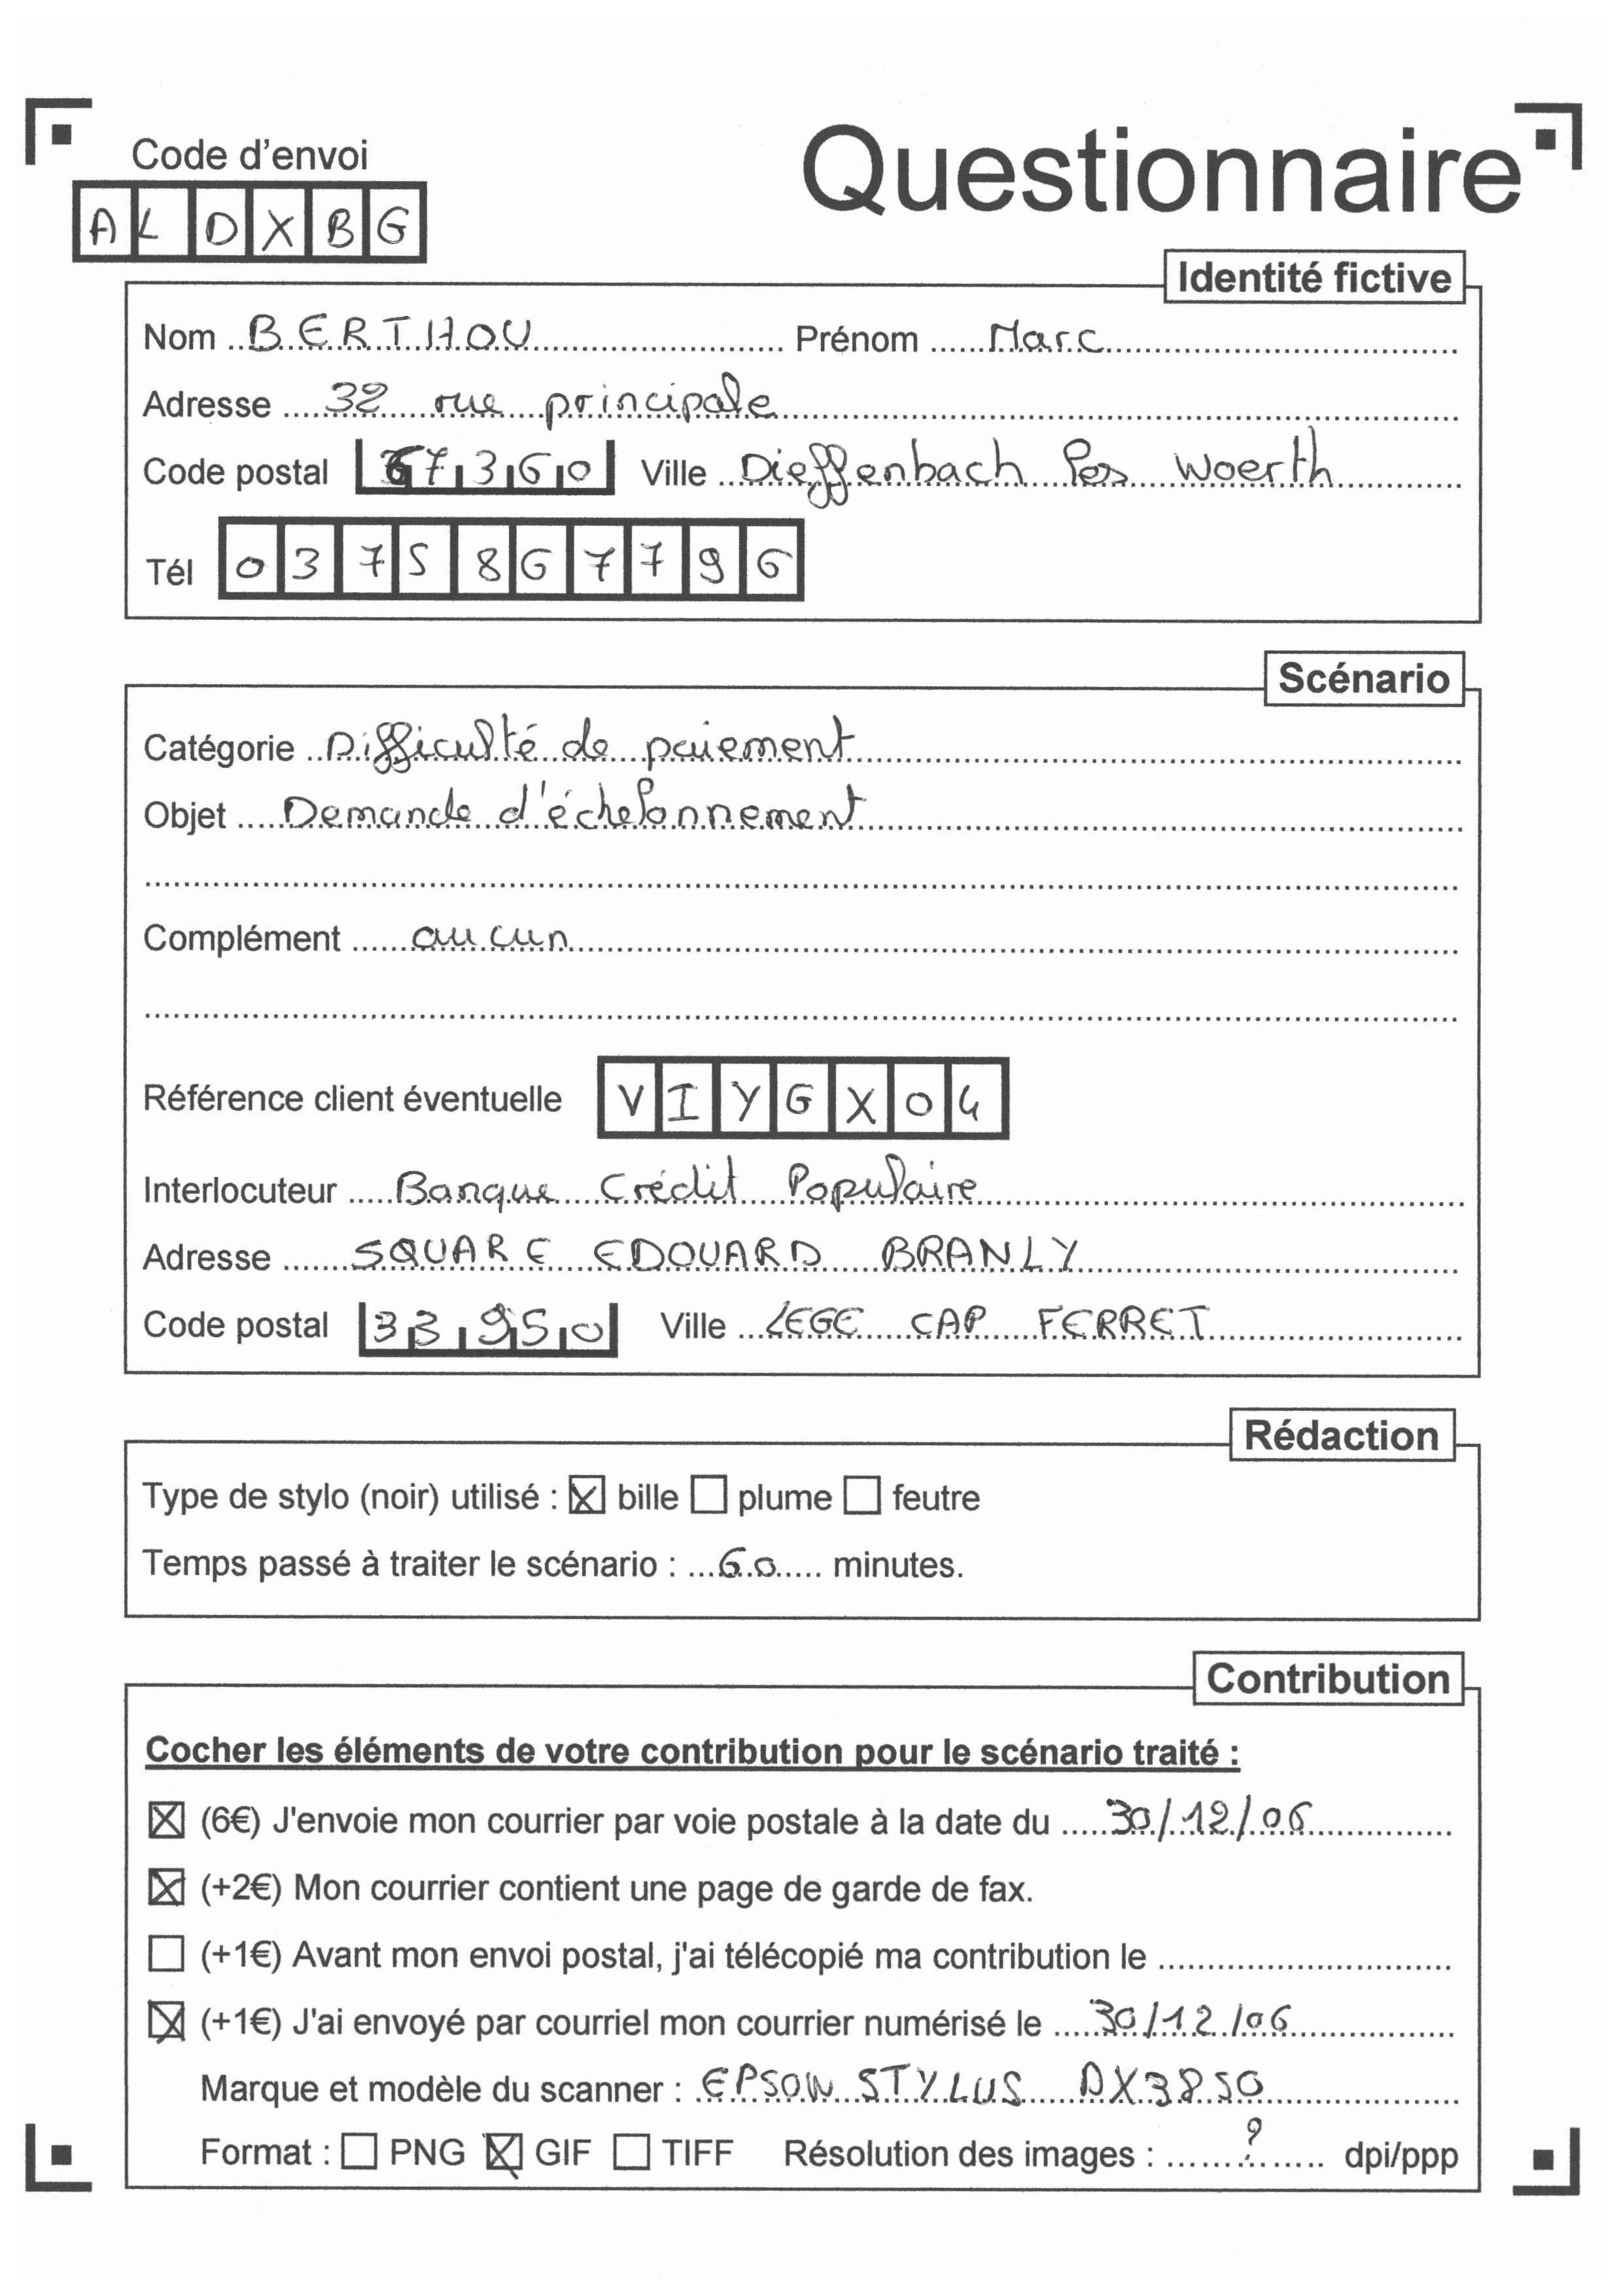 Code d'envoi
Questionnaire
ALDXBG
Identité fictive
Nom BERTHOU Prénom Marc
Adresse 32 rue principale
Code postal 67360 Ville Dieffenbach les Woerth
Tél 0375867796
Scénario
Catégorie Difficulté de paiement
Objet Demande d'échelonnement
Complément aucun
Référence client éventuelle VIYGX04
Interlocuteur Banque Crédit Populaire
Adresse SQUARE EDOUARD BRANLY
Code postal 33950 Ville LEGE CAP FERRET
Rédaction
Type de stylo (noir) utilisé : ☒ bille ☐ plume ☐ feutre
Temps passé à traiter le scénario : 60 minutes.
Contribution
Cocher les éléments de votre contribution pour le scénario traité :
☒ (6€) J'envoie mon courrier par voie postale à la date du 30/12/06
☒ (+2€) Mon courrier contient une page de garde de fax.
☐ (+1€) Avant mon envoi postal, j'ai télécopié ma contribution le
☒ (+1€) J'ai envoyé par courriel mon courrier numérisé le 30/12/06
Marque et modèle du scanner : EPSON STYLUS DX3850
Format : ☐ PNG ☒ GIF ☐ TIFF Résolution des images : ? dpi/ppp